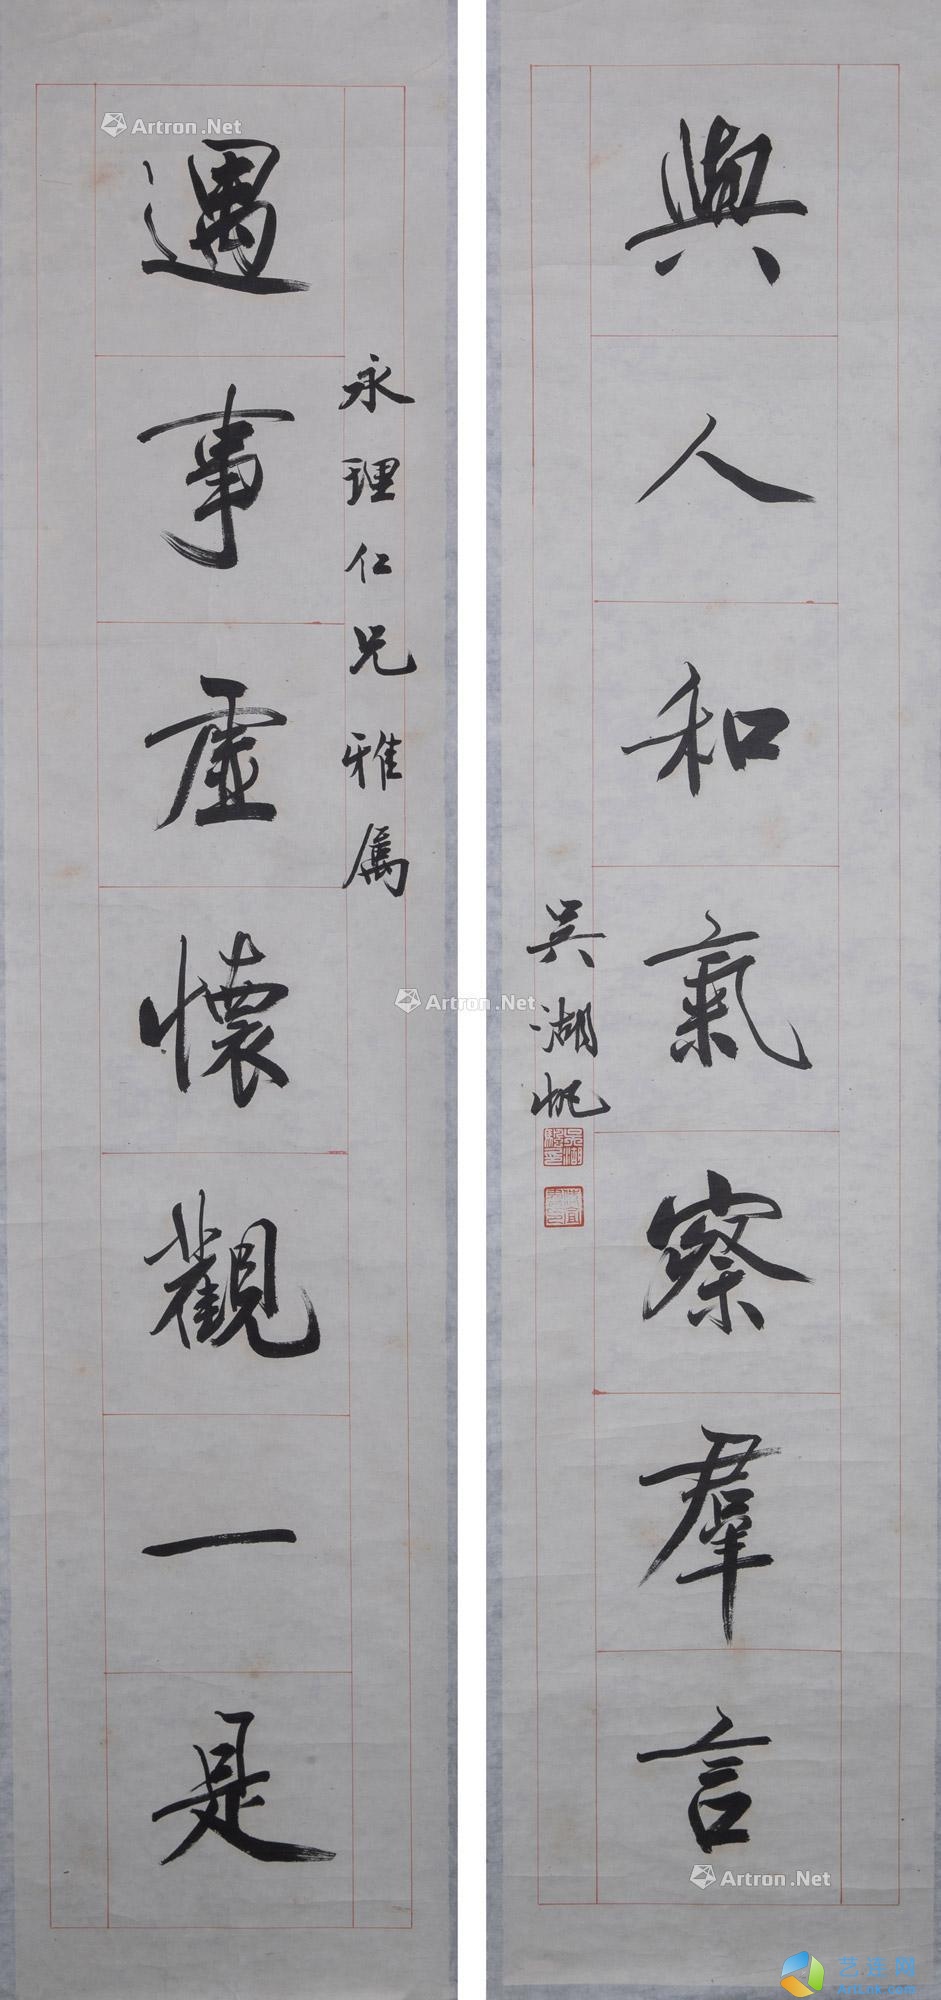 遇事虛懷觀一是
永理仁兄雅属
與人和氣察羣言
吳湖帆
Artron.Net
Artron.Net
Artron.Net